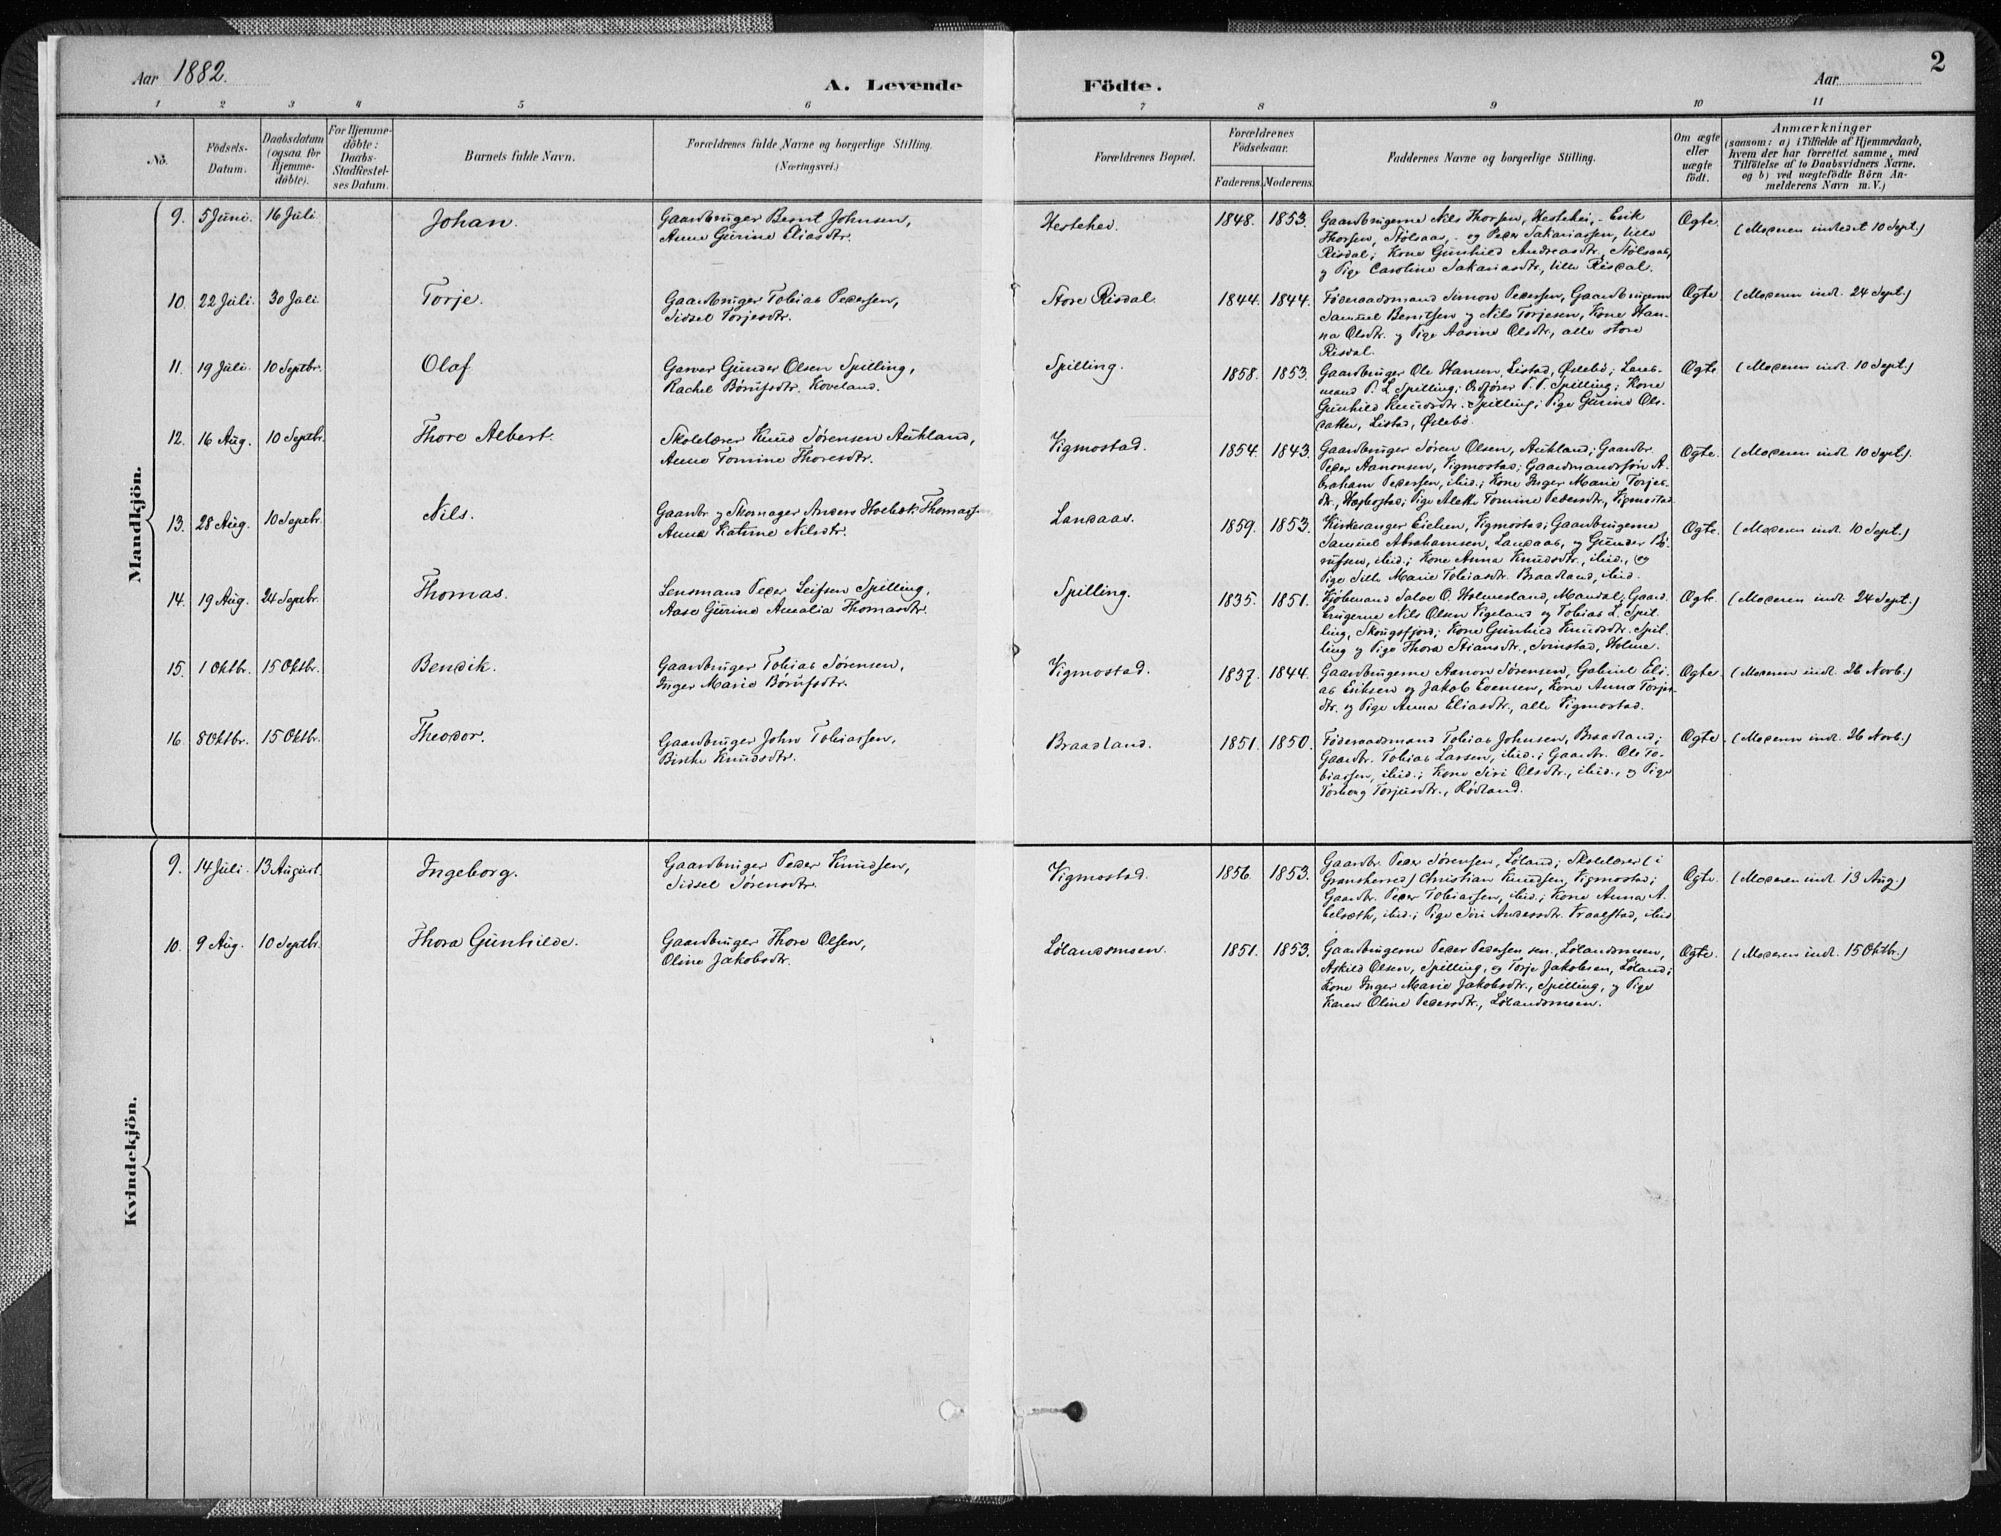 Aar 1882.
A. Levende Födte.
Aar
2
1 2 3 4 5 6 7 8 9 10 11
No.
Födsels-Datum.
Daabsdatum (ogsaa for Hjemme-döbte).
For Hjemme-döbte: Daabs-Stadfæstel-ses Datum.
Barnets fulde Navn.
Forældrenes fulde Navne og borgerlige Stilling.
(Næringsvei.)
Forældrenes Bopæl.
Forældrenes Födselsaar.
Faderens. Moderens.
Faddernes Navne og borgerlige Stilling.
Om ægte eller uægte födt.
Anmærkninger
(saasom: a) i Tilfælde af Hjemmedaab, hvem der har forrettet samme, med Tilföielse af to Daabsvidners Navne. og b) ved uægtefödte Börn An-melderens Navn m. V.)
Mandkjön.
9. 5 Juni. 16 Juli Johan. Gaardbruger Bernt Johnsen, Hestehei. 1848. 1853. Gaardbrugerne Nils Thorsen, Hestehei, - Erik Ægte. (Moderen indledet 10 Sept.)
Anne Gurine Eliasdtr. Thorsen, Stølsaas, - og Peder Sakariassen, lille
Risdal; Kone Gunhild Andreasdtr. Stølsaas,
og Pige Caroline Sakariasdtr, lille Risdal.
10. 22 Juli. 30 Juli Torje. Gaardbruger Tobias Pedersen, Store Risdal. 1844. 1844. Føderaadsmand Simon Pedersen, Gaardbrugerne Ægte (Moderen indl. 24 Sept.)
Sidsel Torjesdtr. Samuel Berntsen og Nils Torjesen, Kone Han-
na Olsdtr. og Pige Aasine Olsdtr, alle store
Risdal.
11. 19 Juli. 10 Septbr. Olaf Garver Gunder Olsen Spilling, Spilling. 1858. 1853. Gaardbruger Ole Hansen, Listad, Øslebø; Lens- Ægte (Moderen indl. 10 Sept.)
Rachel Børufsdtr. Koveland. mand P. L Spilling; Ordfører T. P. Spilling; Kone
Gunhild Knudsdtr. Spilling; Pige Gurine Ols-
datter, Listad, Øslebø.
12. 16 Aug. 10 Septbr. Thore Albert. Skolelærer Knud Sørensen Aukland, Vigmostad. 1854. 1843. Gaardbruger Sören Olsen, Aukland; Gaardbr. Ægte. (Moderen indl. 10 Sept.).
Anne Tomine Thoresdtr. Peder Aanonsen, Vigmostad; Gaardmandssøn A-
braham Pedersen, ibid.; Kone Inger Marie Torjes-
dtr., Hægbostad; Pige Alette Tomine Pedersdtr., Vigmostad.
13. 28 Aug. 10 Septbr. Nils. Gaardbr. og Skomager Anders Thomassen Landaas. 1859. 1853. Kirkesanger Eieken, Vigmostad; Gaardbrugerne Ægte (Moderen indl. 10 Sept.)
Anna Katrine Nilsdtr. Samuel Abrahamsen, Landaas, og Gunder Bø-
rufsen, ibid.; Kone Anna Knudsdtr., ibid., og
Pige Sille Marie Tobiasdtr. Braadland, ibid.
14. 19 Aug. 24 Septbr. Thomas. Lensmand Peder Leifsen Spilling, Spilling. 1835. 1851. Kjøbmand Salve O. Holmesland, Mandal; Gaard- Ægte. (Moderen indl. 24 Sept.)
Aase Gurine Amalia Thomasdtr. brugerne Nils Olsen Vigeland og Tobias L. Spil-
ling, Skougsfjord; Kone Gunhild Knudsdtr. Spil-
ling og Pige Thora Stiansdtr., Svinstad, Holme.
15. 1 Oktbr. 15 Oktbr. Bendik. Gaardbruger Tobias Sørensen, Vigmostad. 1837. 1844. Gaardbrugerne Aanon Sørensen, Gabriel Eli- Ægte. (Moderen indl. 26 Novb.)
Inger Marie Børufsdtr. as Eriksen og Jakob Evensen, Kone Anna Torjes-
dtr. og Pige Anna Eliasdtr., alle Vigmostad.
16. 8 Oktbr. 15 Oktbr. Theodor. Gaardbruger John Tobiassen, Braadland. 1851. 1850. Føderaadsmand Tobias Johnsen, Braadland; Ægte. (Moderen indl. 26 Novb.)
Birthe Knudsdtr. Gaardbr. Tobias Larsen, ibid.; Gaardbr. Ole To-
biassen, ibid.; Kone Siri Olsdtr., ibid., og Pige
Torborg Torjusdtr., Rødland.
Kvindekjön.
9. 14 Juli. 13 August. Ingeborg. Gaardbruger Peder Knudsen, Vigmostad. 1856. 1853. Gaardbr. Peder Sørensen, Løland; Skolelærer (i Ægte. (Moderen indl. 13 Aug.)
Sidsel Sørensdtr. Gransherred) Christian Knudsen, Vigmostad;
Gaardbr. Peder Tobiassen, ibid.; Kone Anna A-
belseth, ibid.; Pige Siri Andersdtr. Vraalstad, ibid.
10. 9 Aug. 10 Septbr. Thora Gunhilde. Gaardbruger Thore Olsen, Lølandsmoen. 1851. 1853. Gaardbrugerne Peder Pedersen sen., Lølandsmoen, Ægte. (Moderen indl. 15 Oktbr.)
Oline Jakobsdtr. Askild Olsen, Spilling, og Torje Jakobsen, Løland;
Kone Inger Marie Jakobsdtr., Spilling, og Pige
Karen Oline Pedersdtr., Lølandsmoen.